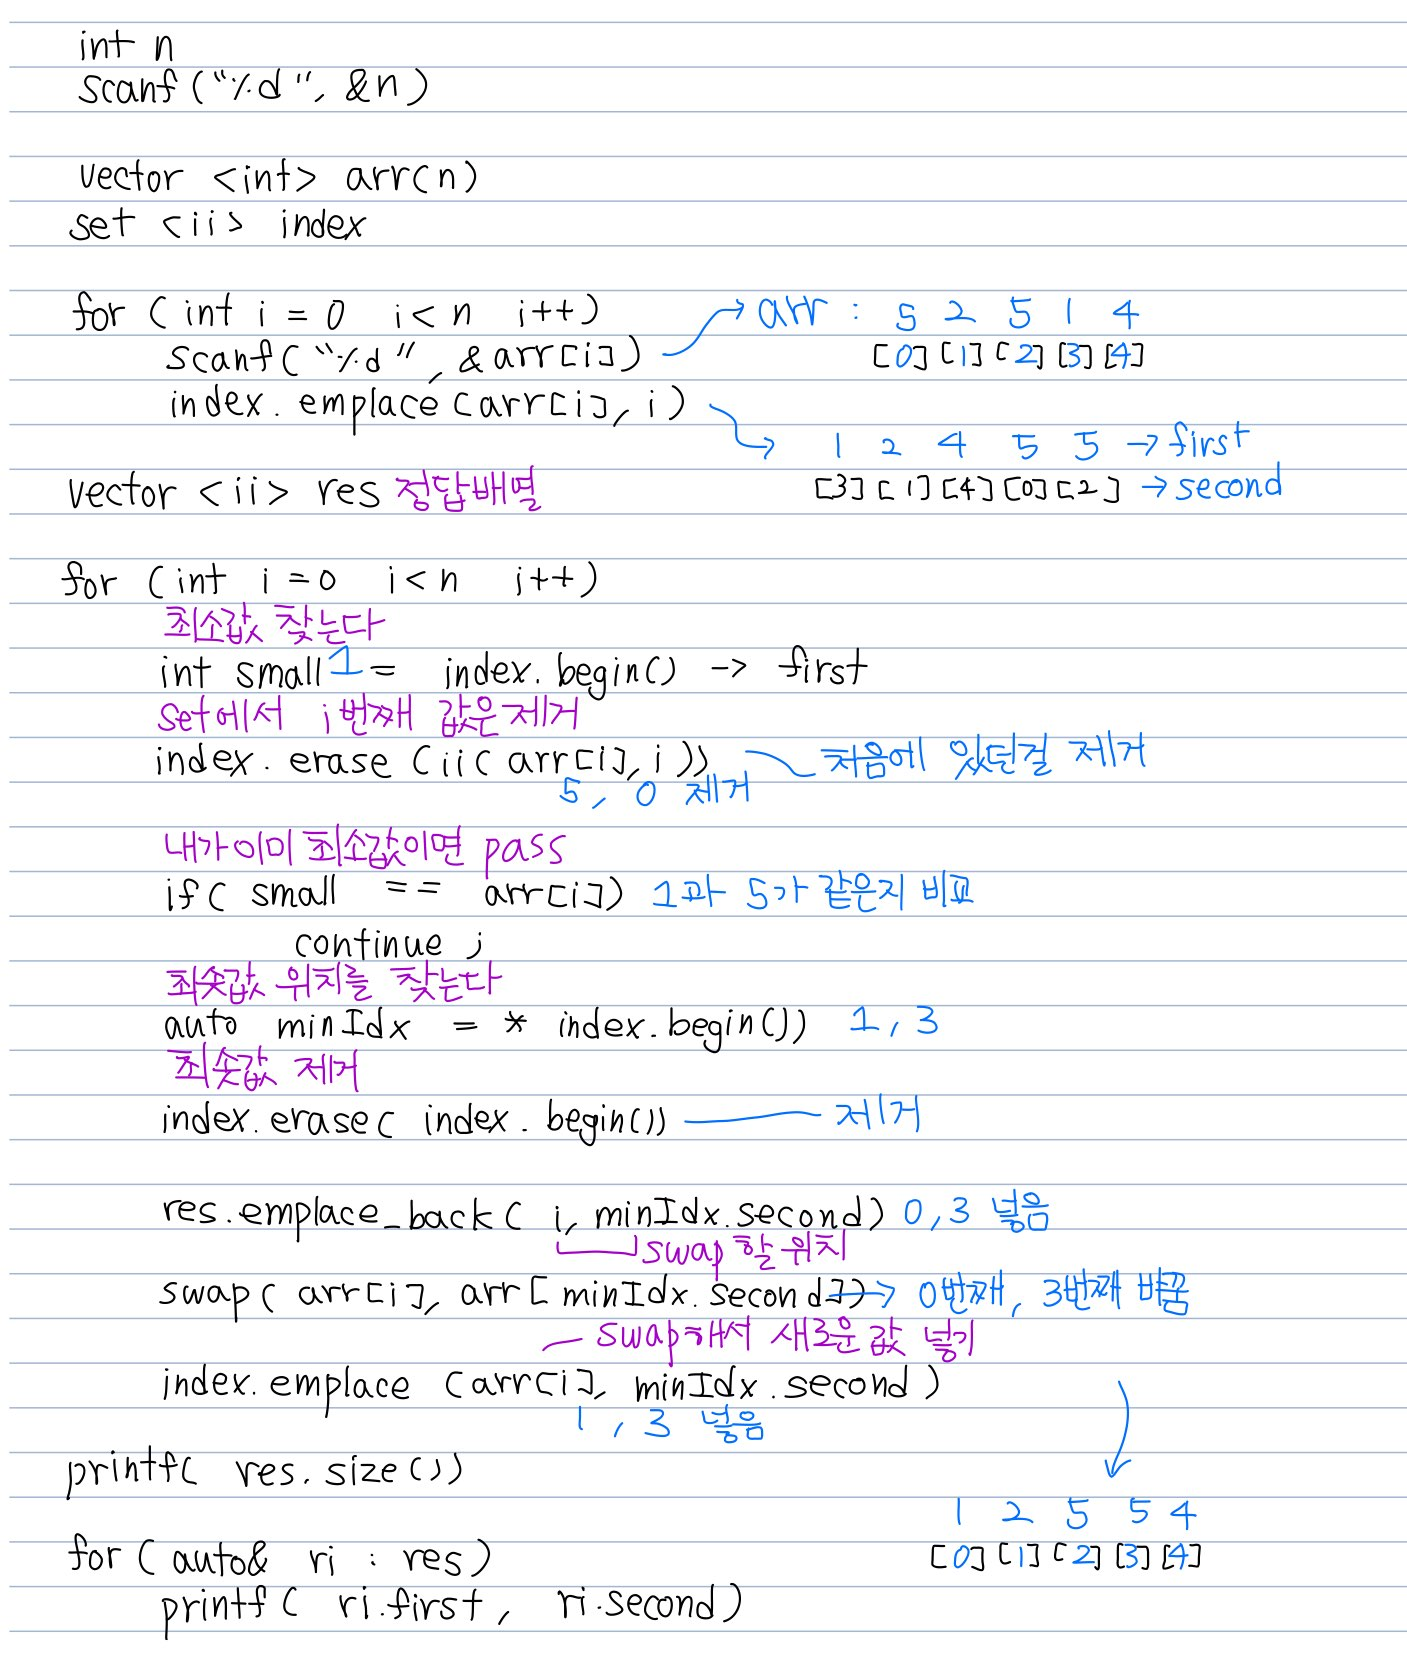 int n
scanf("%d", &n)
vector <int> arr(n)
set <ii> index
for (int i = 0 i<n i++) → arr : 5 2 5 1 4
scanf("%d", &arr[i]) [0] [1] [2] [3] [4]
index. emplace (arr[i], i)
1 2 4 5 5 → first
vector <ii> res 정답배열 [3] [1] [4] [0] [2] → second
for (int i=0 i<n i++)
최소값 찾는다
int small 1 = index.begin() -> first
set에서 i번째 값은 제거
index. erase (ii( arr[i], i )) 처음에 있던걸 제거
5, 0 제거
내가이미 최소값이면 pass
if( small == arr[i]) 1과 5가 같은지 비교
continue ;
최솟값 위치를 찾는다
auto minIdx = * index.begin()) 1, 3
최솟값 제거
index.erase( index. begin()) 제거
res.emplace_back( i, minIdx.second) 0,3 넣음
swap 할 위치
swap( arr[i], arr[minIdx.second]) → 0번째, 3번째 바꿈
swap해서 새로운 값 넣기
index.emplace (arr[i], minIdx.second)
1, 3 넣음
printf( res.size())
1 2 5 5 4
for (auto& ri : res) [0] [1] [2] [3] [4]
printf( ri.first, ri.second)